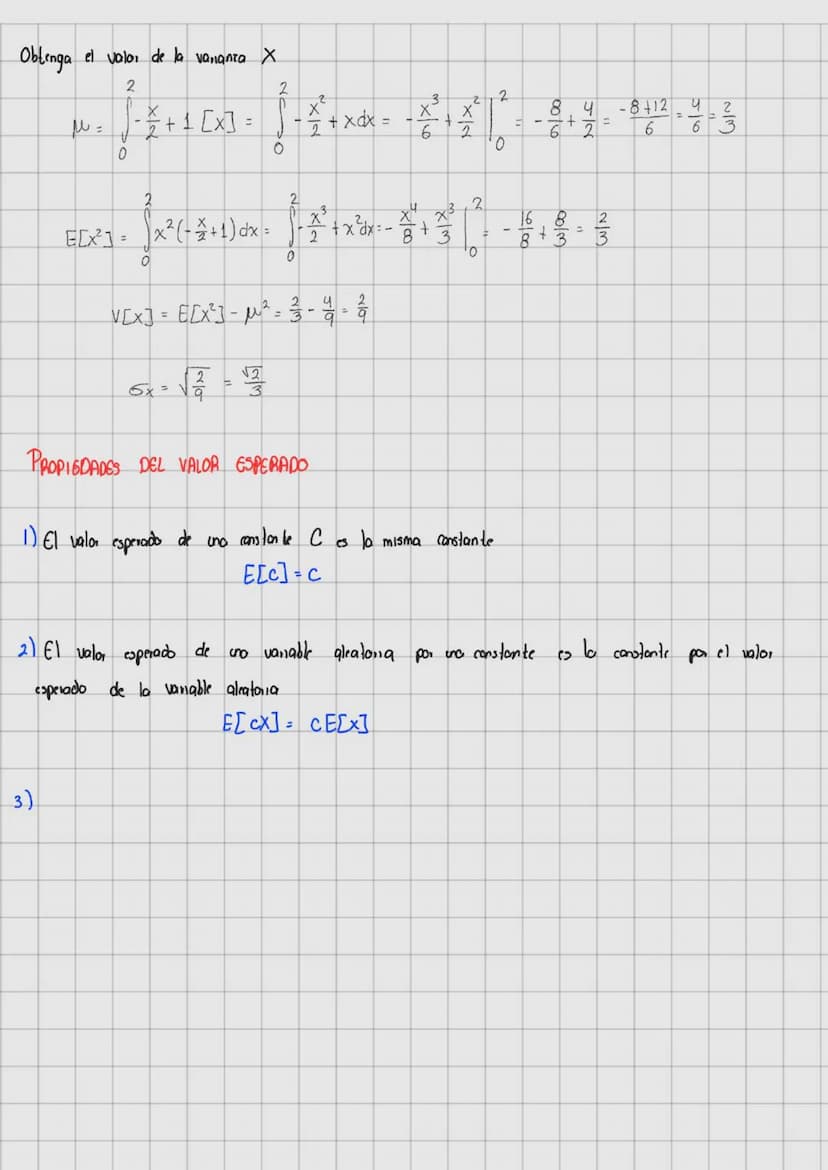 Obtenga el valor de la varianza X
μ = ∫₀² -x/2 + 1 [x] = ∫₀² -x²/2 + x dx = -x³/6 + x²/2 |₀² = -8/6 + 4/2 = (-8+12)/6 = 4/6 = 2/3
E[x²] = ∫₀² x²(-x/2 + 1) dx = ∫₀² -x³/2 + x² dx = -x⁴/8 + x³/3 |₀² = -16/8 + 8/3 = 2/3
V[x] = E[x²] - μ² = 2/3 - 4/9 = 2/9
σx = √(2/9) = √2/3
PROPIEDADES DEL VALOR ESPERADO
1) El valor esperado de una constante C es la misma constante
E[c] = c
2) El valor esperado de una variable aleatoria por una constante es la constante por el valor
esperado de la variable aleatoria
E[cX] = cE[x]
3)